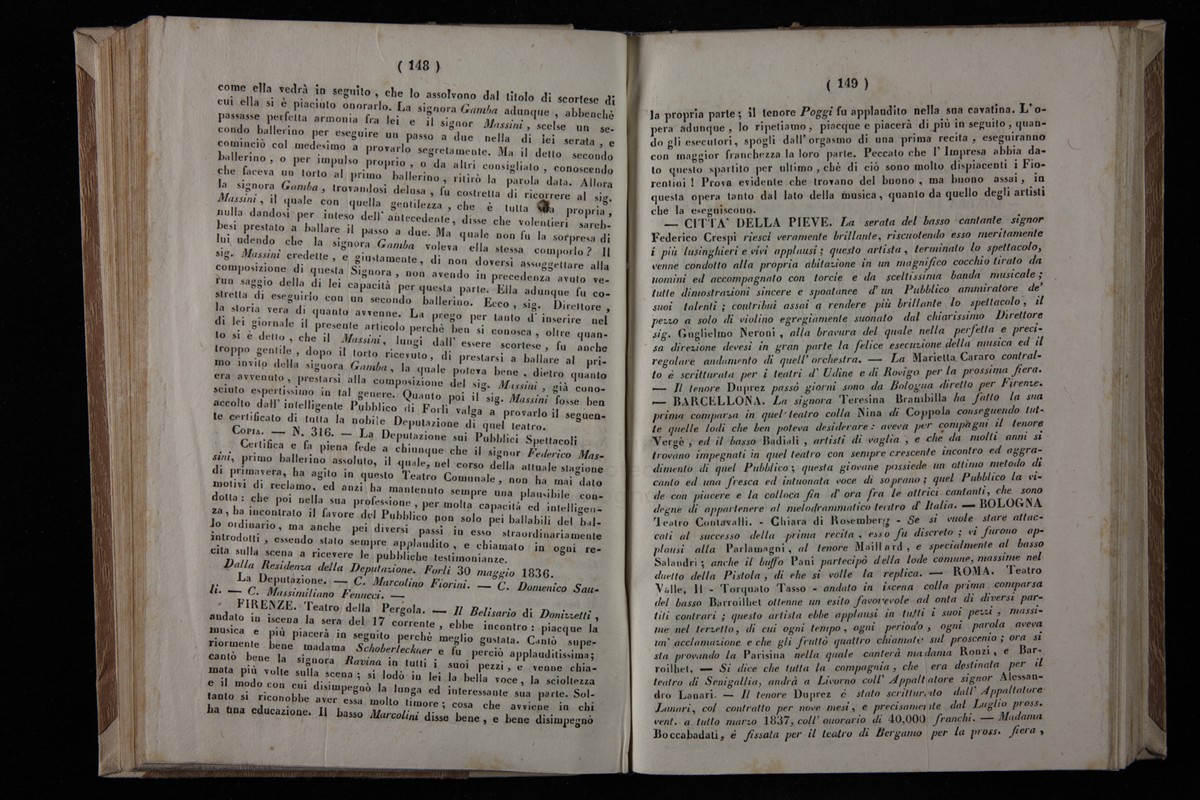 ( 148 )
come ella vedrà in seguito , che lo assolvono dal titolo di scortese di
cui ella si è piaciuto onorarlo. La signora Gamba adunque , abbenchè
passasse perfetta armonia fra lei e il signor Massini , scelse un se-
condo ballerino per eseguire un passo a due nella di lei serata , e
cominciò col medesimo a provarlo segretamente. Ma il detto secondo
ballerino , o per impulso proprio , o da altri consigliato , conoscendo
che faceva un torto al primo ballerino , ritirò la parola data. Allora
la signora Gamba , trovandosi delusa , fu costretta di ricorrere al sig.
Massini , il quale con quella gentilezza , che è tutta sua propria ,
nulla dandosi per inteso dell' antecedente, disse che volentieri sareb-
besi prestato a ballare il passo a due. Ma quale non fu la sorpresa di
lui udendo che la signora Gamba voleva ella stessa comporlo ? Il
sig. Massini credette , e giustamente, di non doversi assoggettare alla
composizione di questa Signora , non avendo in precedenza avuto ve-
run saggio della di lei capacità per questa parte. Ella adunque fu co-
stretta di eseguirlo con un secondo ballerino. Ecco , sig. Direttore ,
la storia vera di quanto avvenne. La prego per tanto d' inserire nel
di lei giornale il presente articolo perchè ben si conosca , oltre quan-
to si è detto , che il Massini, lungi dall' essere scortese , fu anche
troppo gentile , dopo il torto ricevuto, di prestarsi a ballare al pri-
mo invito della signora Gamba , la quale poteva bene , dietro quanto
era avvenuto , prestarsi alla composizione del sig. Massini , già cono-
sciuto espertissimo in tal genere. Quanto poi il sig. Massini fosse ben
accolto dall' intelligente Pubblico di Forlì valga a provarlo il seguen-
te certificato di tutta la nobile Deputazione di quel teatro.
Copia. — N. 316. — La Deputazione sui Pubblici Spettacoli
Certifica e fa piena fede a chiunque che il signor Federico Mas-
sini, primo ballerino assoluto, il quale, nel corso della attuale stagione
di primavera, ha agito in questo Teatro Comunale , non ha mai dato
motivi di reclamo, ed anzi ha mantenuto sempre una plausibile con-
dotta : che poi nella sua professione , per molta capacità ed intelligen-
za , ha incontrato il favore del Pubblico non solo pei ballabili del bal-
lo ordinario , ma anche pei diversi passi in esso straordinariamente
introdotti , essendo stato sempre applaudito , e chiamato in ogni re-
cita sulla scena a ricevere le pubbliche testimonianze.
Dalla Residenza della Deputazione. Forlì 30 maggio 1836.
La Deputazione. — C. Marcolino Fiorini. — C. Domenico Sau-
li. — C. Massimiliano Fenucci. —
FIRENZE. Teatro della Pergola. — Il Belisario di Donizzetti ,
andato in iscena la sera del 17 corrente , ebbe incontro : piacque la
musica e più piacerà in seguito perchè meglio gustata. Cantò supe-
riormente bene madama Schoberleckner e fu perciò applauditissima;
cantò bene la signora Ravina in tutti i suoi pezzi , e venne chia-
mata più volte sulla scena ; si lodò in lei la bella voce , la scioltezza
e il modo con cui disimpegnò la lunga ed interessante sua parte. Sol-
tanto si riconobbe aver essa molto timore ; cosa che avviene in chi
ha una educazione. Il basso Marcolini disse bene , e bene disimpegnò
( 149 )
la propria parte ; il tenore Poggi fu applaudito nella sna cavatina. L' o-
pera adunque , lo ripetiamo , piacque e piacerà di più in seguito , quan-
do gli esecutori, spogli dall' orgasmo di una prima recita , eseguiranno
con maggior franchezza la loro parte. Peccato che l' Impresa abbia da-
to questo spartito per ultimo , chè di ciò sono molto dispiacenti i Fio-
rentini ! Prova evidente che trovano del buono , ma buono assai , in
questa opera tanto dal lato della musica , quanto da quello degli artisti
che la eseguiscono.
— CITTA' DELLA PIEVE. La serata del basso cantante signor
Federico Crespi riescì veramente brillante, riscuotendo esso meritamente
i più lusinghieri e vivi applausi ; questo artista , terminato lo spettacolo,
venne condotto alla propria abitazione in un magnifico cocchio tirato da
uomini ed accompagnato con torcie e da sceltissima banda musicale ;
tutte dimostrazioni sincere e spoatanee d' un Pubblico ammiratore de'
suoi talenti ; contribuì assai a rendere più brillante lo spettacolo , il
pezzo a solo di violino egregiamente suonato dal chiarissimo Direttore
sig. Guglielmo Neroni , alla bravura del quale nella perfetta e preci-
sa direzione devesi in gran parte la felice esecuzione della musica ed il
regolare andamento di quell' orchestra. — La Marietta Cararo contral-
to è scritturata per i teatri d' Udine e di Rovigo per la prossima fiera.
— Il tenore Duprez passò giorni sono da Bologna diretto per Firenze.
— BARCELLONA. La signora Teresina Brambilla ha fatto la sua
prima comparsa in quel teatro colla Nina di Coppola conseguendo tut-
te quelle lodi che ben poteva desiderare : aveva per compagni il tenore
Vergè , ed il basso Badiali , artisti di vaglia , e che da molti anni si
trovano impegnati in quel teatro con sempre crescente incontro ed aggra-
dimento di quel Pubblico ; questa giovane possiede un ottimo metodo di
canto ed una fresca ed intuonata voce di soprano ; quel Pubblico la vi-
de con piacere e la colloca fin d' ora fra le attrici cantanti, che sono
degne di appartenere al melodrammatico teatro d' Italia. — BOLOGNA
Teatro Contavalli. - Chiara di Rosemberg - Se si vuole stare attac-
cati al successo della prima recita , esso fu discreto ; vi furono ap-
plausi alla Parlamagni , al tenore Maillard , e specialmente al basso
Salandri ; anche il buffo Pani partecipò della lode comune, massime nel
duetto della Pistola , di che si volle la replica. — ROMA. Teatro
Valle. Il - Torquato Tasso - andato in iscena colla prima comparsa
del basso Barroilhet ottenne un esito favorevole ad onta di diversi par-
titi contrari ; questo artista ebbe applausi in tutti i suoi pezzi , massi-
me nel terzetto, di cui ogni tempo , ogni periodo , ogni parola aveva
un' acclamazione e che gli fruttò quattro chiamate sul proscenio ; ora si
sta provando la Parisina nella quale canterà madama Ronzi , e Bar-
roilhet. — Si dice che tutta la compagnia , che era destinata per il
teatro di Senigallia, andrà a Livorno coll' Appaltatore signor Alessan-
dro Lanari. — Il tenore Duprez è stato scritturato dall' Appaltatore
Lanari, col contratto per nove mesi , e precisamente dal Luglio pross.
vent. a tutto marzo 1837, coll' onorario di 40,000 franchi. — Madama
Boccabadati, è fissata per il teatro di Bergamo per la pross. fiera ,